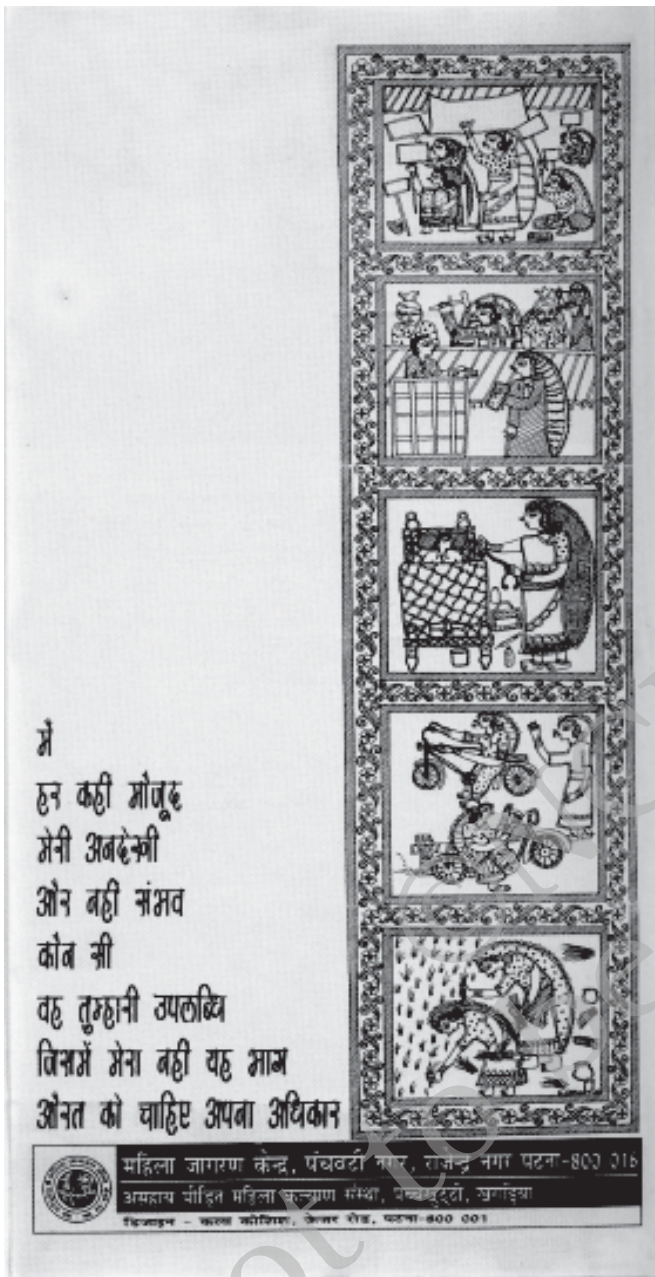 मैं
हर कहीं मौजूद
मेरी अनदेखी
और नहीं संभव
कौन सी
वह तुम्हारी उपलब्धि
जिसमें मेरा नहीं यह भाग
औरत को चाहिए अपना अधिकार
महिला जागरण केन्द्र, पंचवटी नगर, राजेन्द्र नगर पटना-800 016
असहाय पीड़ित महिला कल्याण संस्था, खगड़िया
डिजाइन - रोड, पटना-800 001